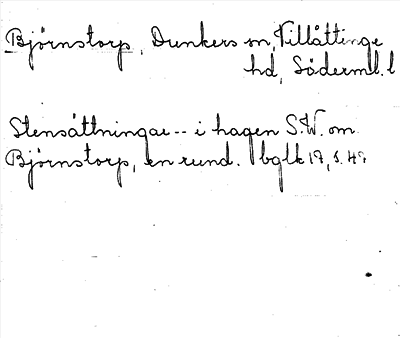 Björnstorp, Dunkers sn, Villåttinge
hd, Söderml. l
Stensättningar -- i hagen S.W. om
Björnstorp, en rund. bglk 17, s. 47